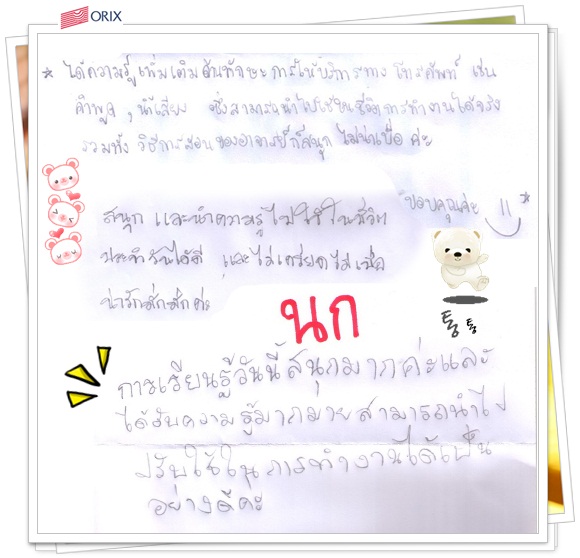 ORIX
* ได้ความรู้เพิ่มเติมด้านทักษะการให้บริการทางโทรศัพท์ เช่น
คำพูด, น้ำเสียง ซึ่งสามารถนำไปใช้ในชีวิตการทำงานได้จริง
รวมทั้ง วิธีการสอนของอาจารย์ก็สนุก ไม่น่าเบื่อ ค่ะ
"ขอบคุณค่ะ"
สนุก และนำความรู้ไปใช้ในชีวิต
ประจำวันได้ดี และไม่เครียดไม่เบื่อ
น่ารักมักมักค่ะ
นก
통통
การเรียนรู้วันนี้สนุกมากค่ะและ
ได้รับความรู้มากมายสามารถนำไป
ปรับใช้ในการทำงานได้เป็น
อย่างดีคะ